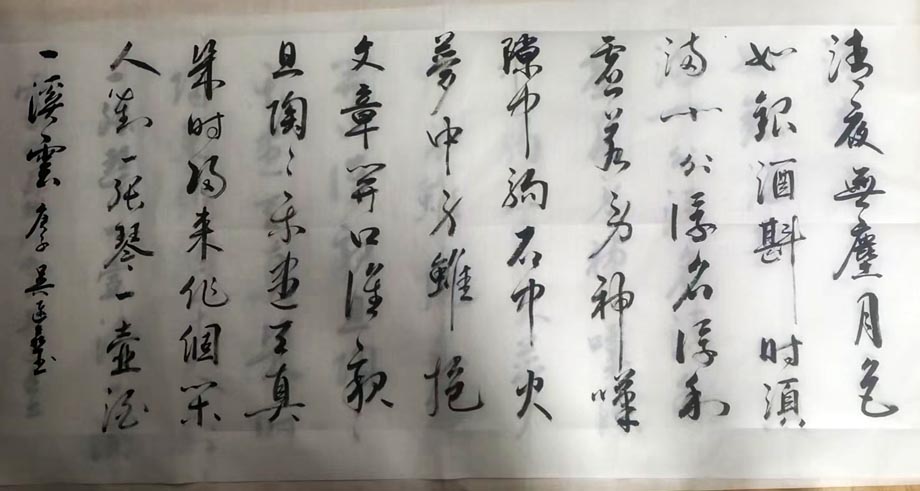 清夜無塵月色
如銀酒斟时須
满十分浮名浮利
虚苦劳神嘆
隙中駒石中火
夢中身雖抱
文章開口誰親
且陶々乐尽天真
几时归来作個閑
人對一張琴一壺酒
一溪雲 庚子 吴